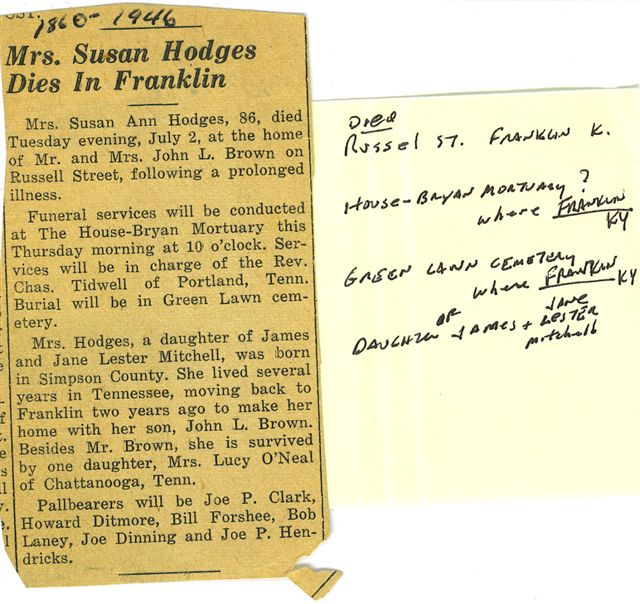 1860-1946
Mrs. Susan Hodges
Dies In Franklin
Mrs. Susan Ann Hodges, 86, died
Tuesday evening, July 2, at the home
of Mr. and Mrs. John L. Brown on
Russell Street, following a prolonged
illness.
Funeral services will be conducted
at The House-Bryan Mortuary this
Thursday morning at 10 o'clock. Ser-
vices will be in charge of the Rev.
Chas. Tidwell of Portland, Tenn.
Burial will be in Green Lawn cem-
etery.
Mrs. Hodges, a daughter of James
and Jane Lester Mitchell, was born
in Simpson County. She lived several
years in Tennessee, moving back to
Franklin two years ago to make her
home with her son, John L. Brown.
Besides Mr. Brown, she is survived
by one daughter, Mrs. Lucy O'Neal
of Chattanooga, Tenn.
Pallbearers will be Joe P. Clark,
Howard Ditmore, Bill Forshee, Bob
Laney, Joe Dinning and Joe P. Hen-
dricks.
Died
Russel St. Franklin K.
House-Bryan Mortuary ?
where Franklin
KY
Green Lawn Cemetery
where Franklin KY
Daughter of James + Jane
Lester
Mitchell